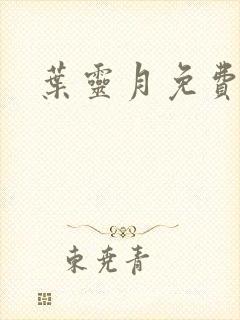 葉靈月免費
東堯青